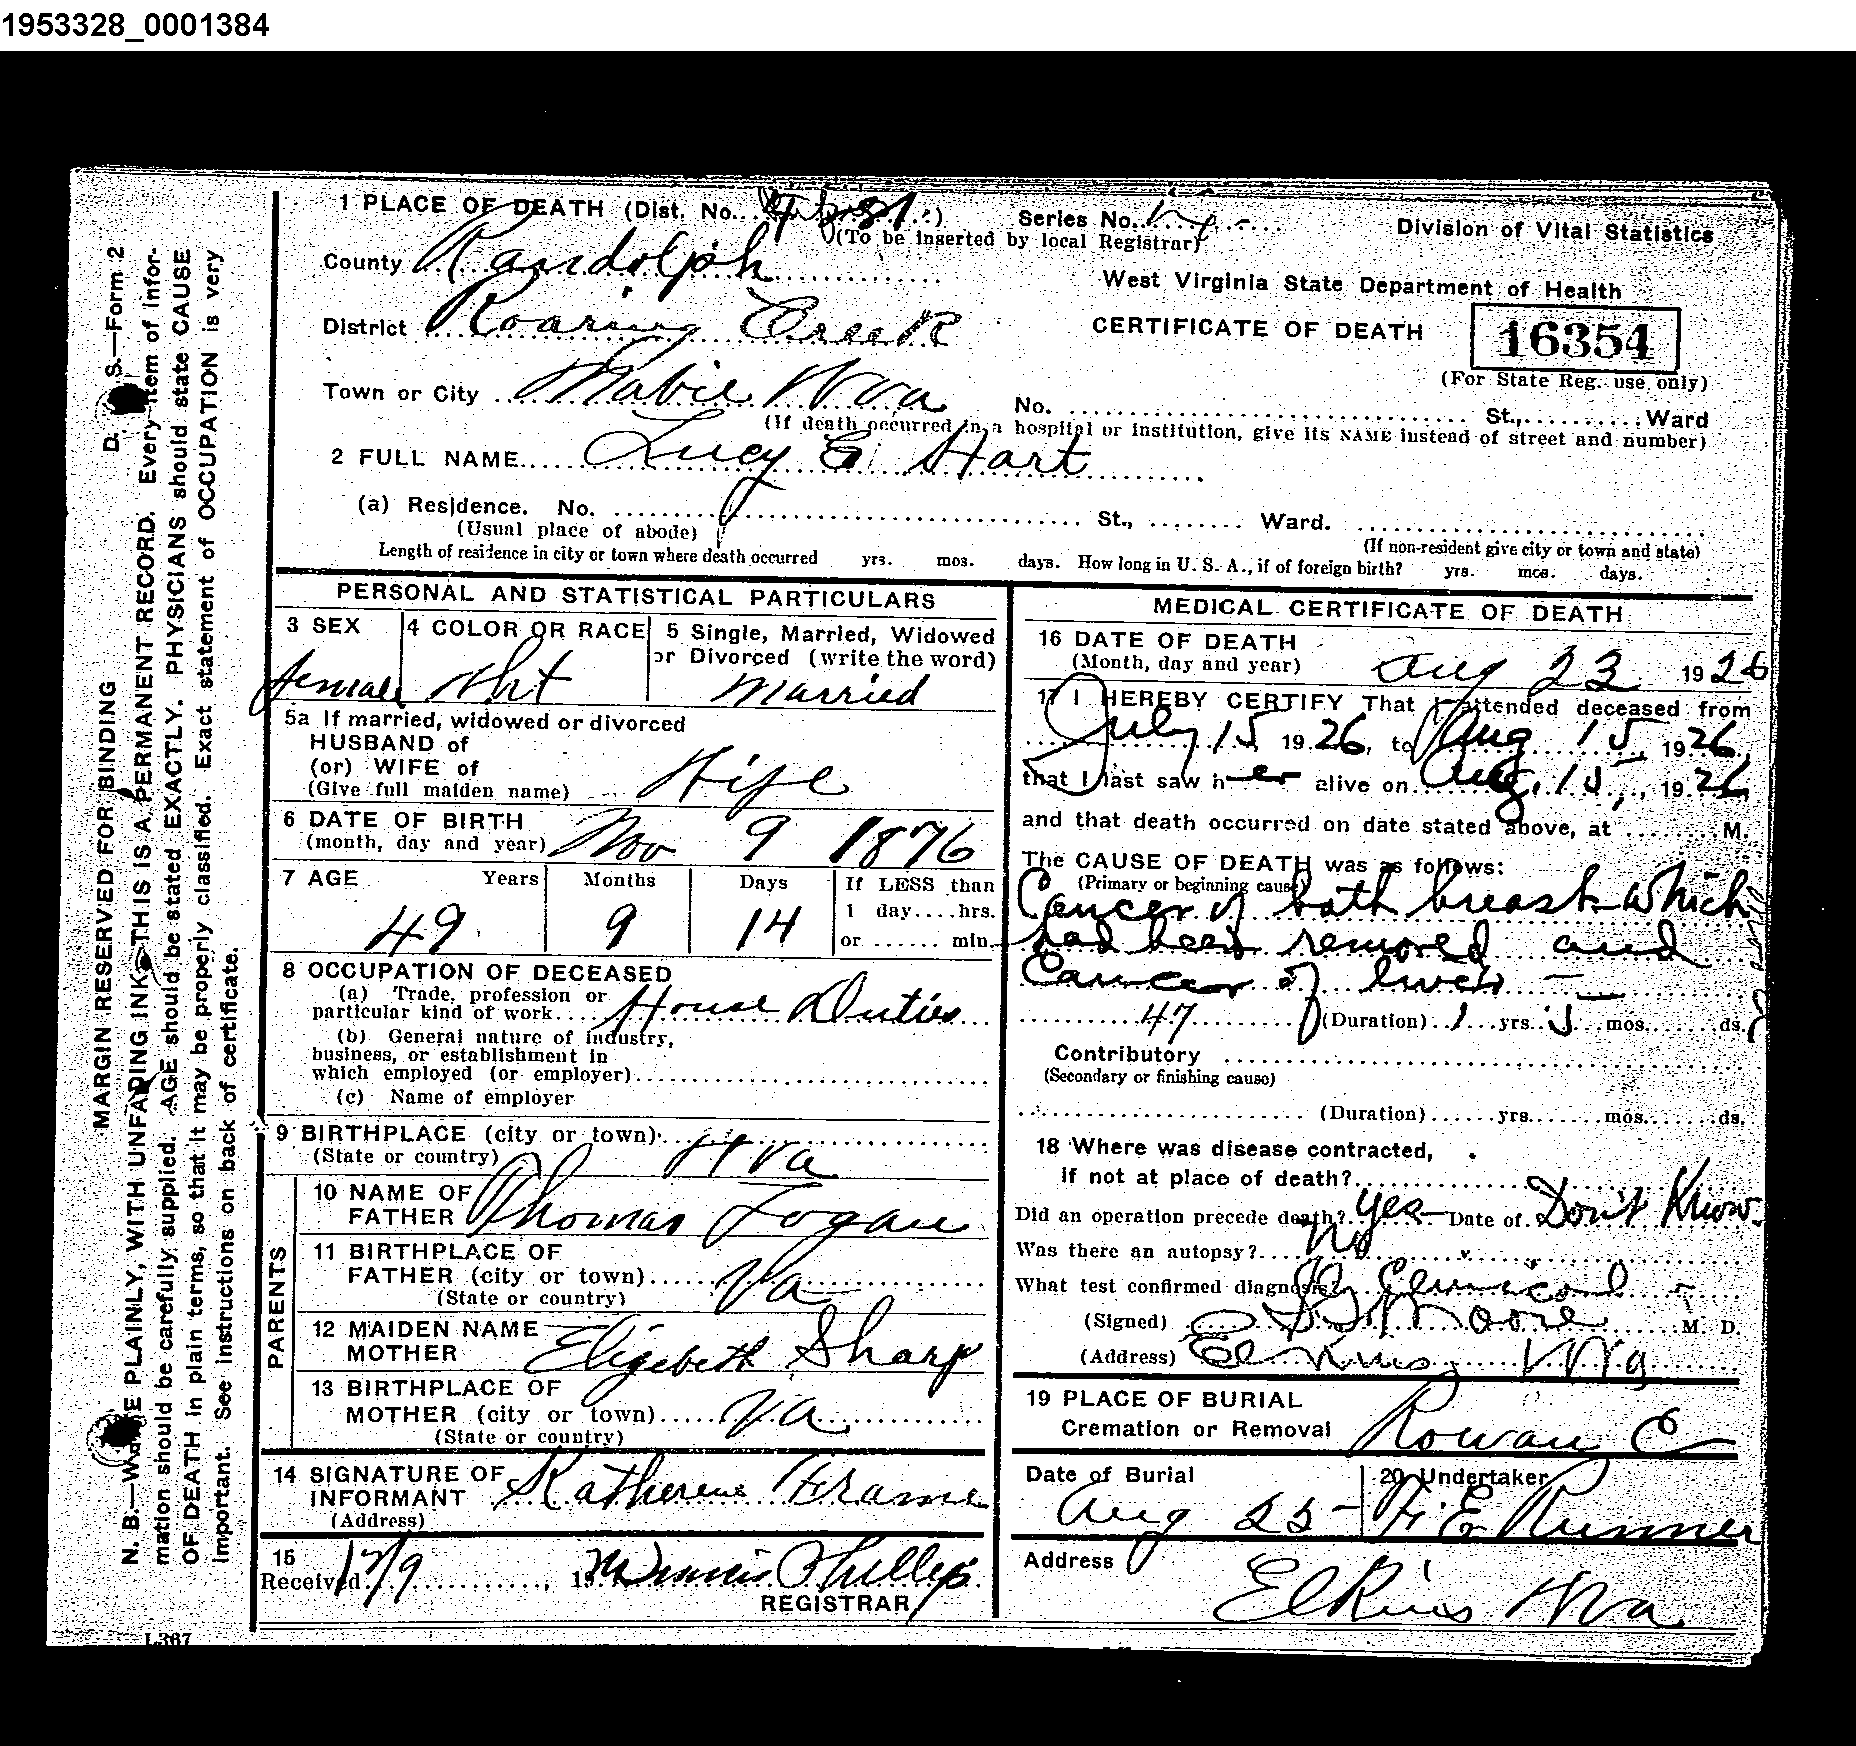 1953328_0001384
1 PLACE OF DEATH (Dist. No. ) Series No. Division of Vital Statistics
(To be inserted by local Registrar)
County Randolph
West Virginia State Department of Health
District Roaring Creek
CERTIFICATE OF DEATH 16354
(For State Reg. use only)
Town or City Mabie W Va No. St., Ward
(If death occurred in a hospital or institution, give its NAME instead of street and number)
2 FULL NAME Lucy E Hart
(a) Residence. No. St., Ward.
(Usual place of abode) (If non-resident give city or town and state)
Length of residence in city or town where death occurred yrs. mos. days. How long in U. S. A., if of foreign birth? yrs. mos. days.
PERSONAL AND STATISTICAL PARTICULARS
3 SEX 4 COLOR OR RACE 5 Single, Married, Widowed
or Divorced (write the word)
female Wht Married
5a If married, widowed or divorced
HUSBAND of
(or) WIFE of
(Give full maiden name) Wife
6 DATE OF BIRTH
(month, day and year) Nov 9 1876
7 AGE Years Months Days If LESS than
1 day....hrs.
or ...... min.
49 9 14
8 OCCUPATION OF DECEASED
(a) Trade, profession or
particular kind of work House Duties
(b) General nature of industry,
business, or establishment in
which employed (or employer)
(c) Name of employer
9 BIRTHPLACE (city or town)
(State or country) W Va
PARENTS
10 NAME OF
FATHER Thomas Logan
11 BIRTHPLACE OF
FATHER (city or town) Va
(State or country)
12 MAIDEN NAME
MOTHER Elizebeth Sharp
13 BIRTHPLACE OF
MOTHER (city or town) Va
(State or country)
14 SIGNATURE OF
INFORMANT Katherene Frame
(Address)
15
Received 19 Minnie Phillips
REGISTRAR
MEDICAL CERTIFICATE OF DEATH
16 DATE OF DEATH
(Month, day and year) Aug 23 1926
17 I HEREBY CERTIFY That I attended deceased from
July 15 1926, to Aug 15, 1926,
that I last saw her alive on Aug, 15, 1926
and that death occurred on date stated above, at M.
The CAUSE OF DEATH was as follows:
(Primary or beginning cause)
Cancer of both breast which
had been removed and
Cancer of liver
47 (Duration) 1 yrs. 5 mos. ds.
Contributory
(Secondary or finishing cause)
(Duration) yrs. mos. ds.
18 Where was disease contracted,
if not at place of death?
Did an operation precede death? yes Date of Don't Know.
Was there an autopsy? No
What test confirmed diagnosis?
(Signed) Moore M. D.
(Address) Elkins, W Va
19 PLACE OF BURIAL
Cremation or Removal Rowan C
Date of Burial 20 Undertaker
Aug 25 F. E. Runner
Address
Elkins W Va
D. S.—Form 2
MARGIN RESERVED FOR BINDING
N. B.—WRITE PLAINLY, WITH UNFADING INK—THIS IS A PERMANENT RECORD. Every item of infor-
mation should be carefully supplied. AGE should be stated EXACTLY. PHYSICIANS should state CAUSE
OF DEATH in plain terms, so that it may be properly classified. Exact statement of OCCUPATION is very
important. See instructions on back of certificate.
L367